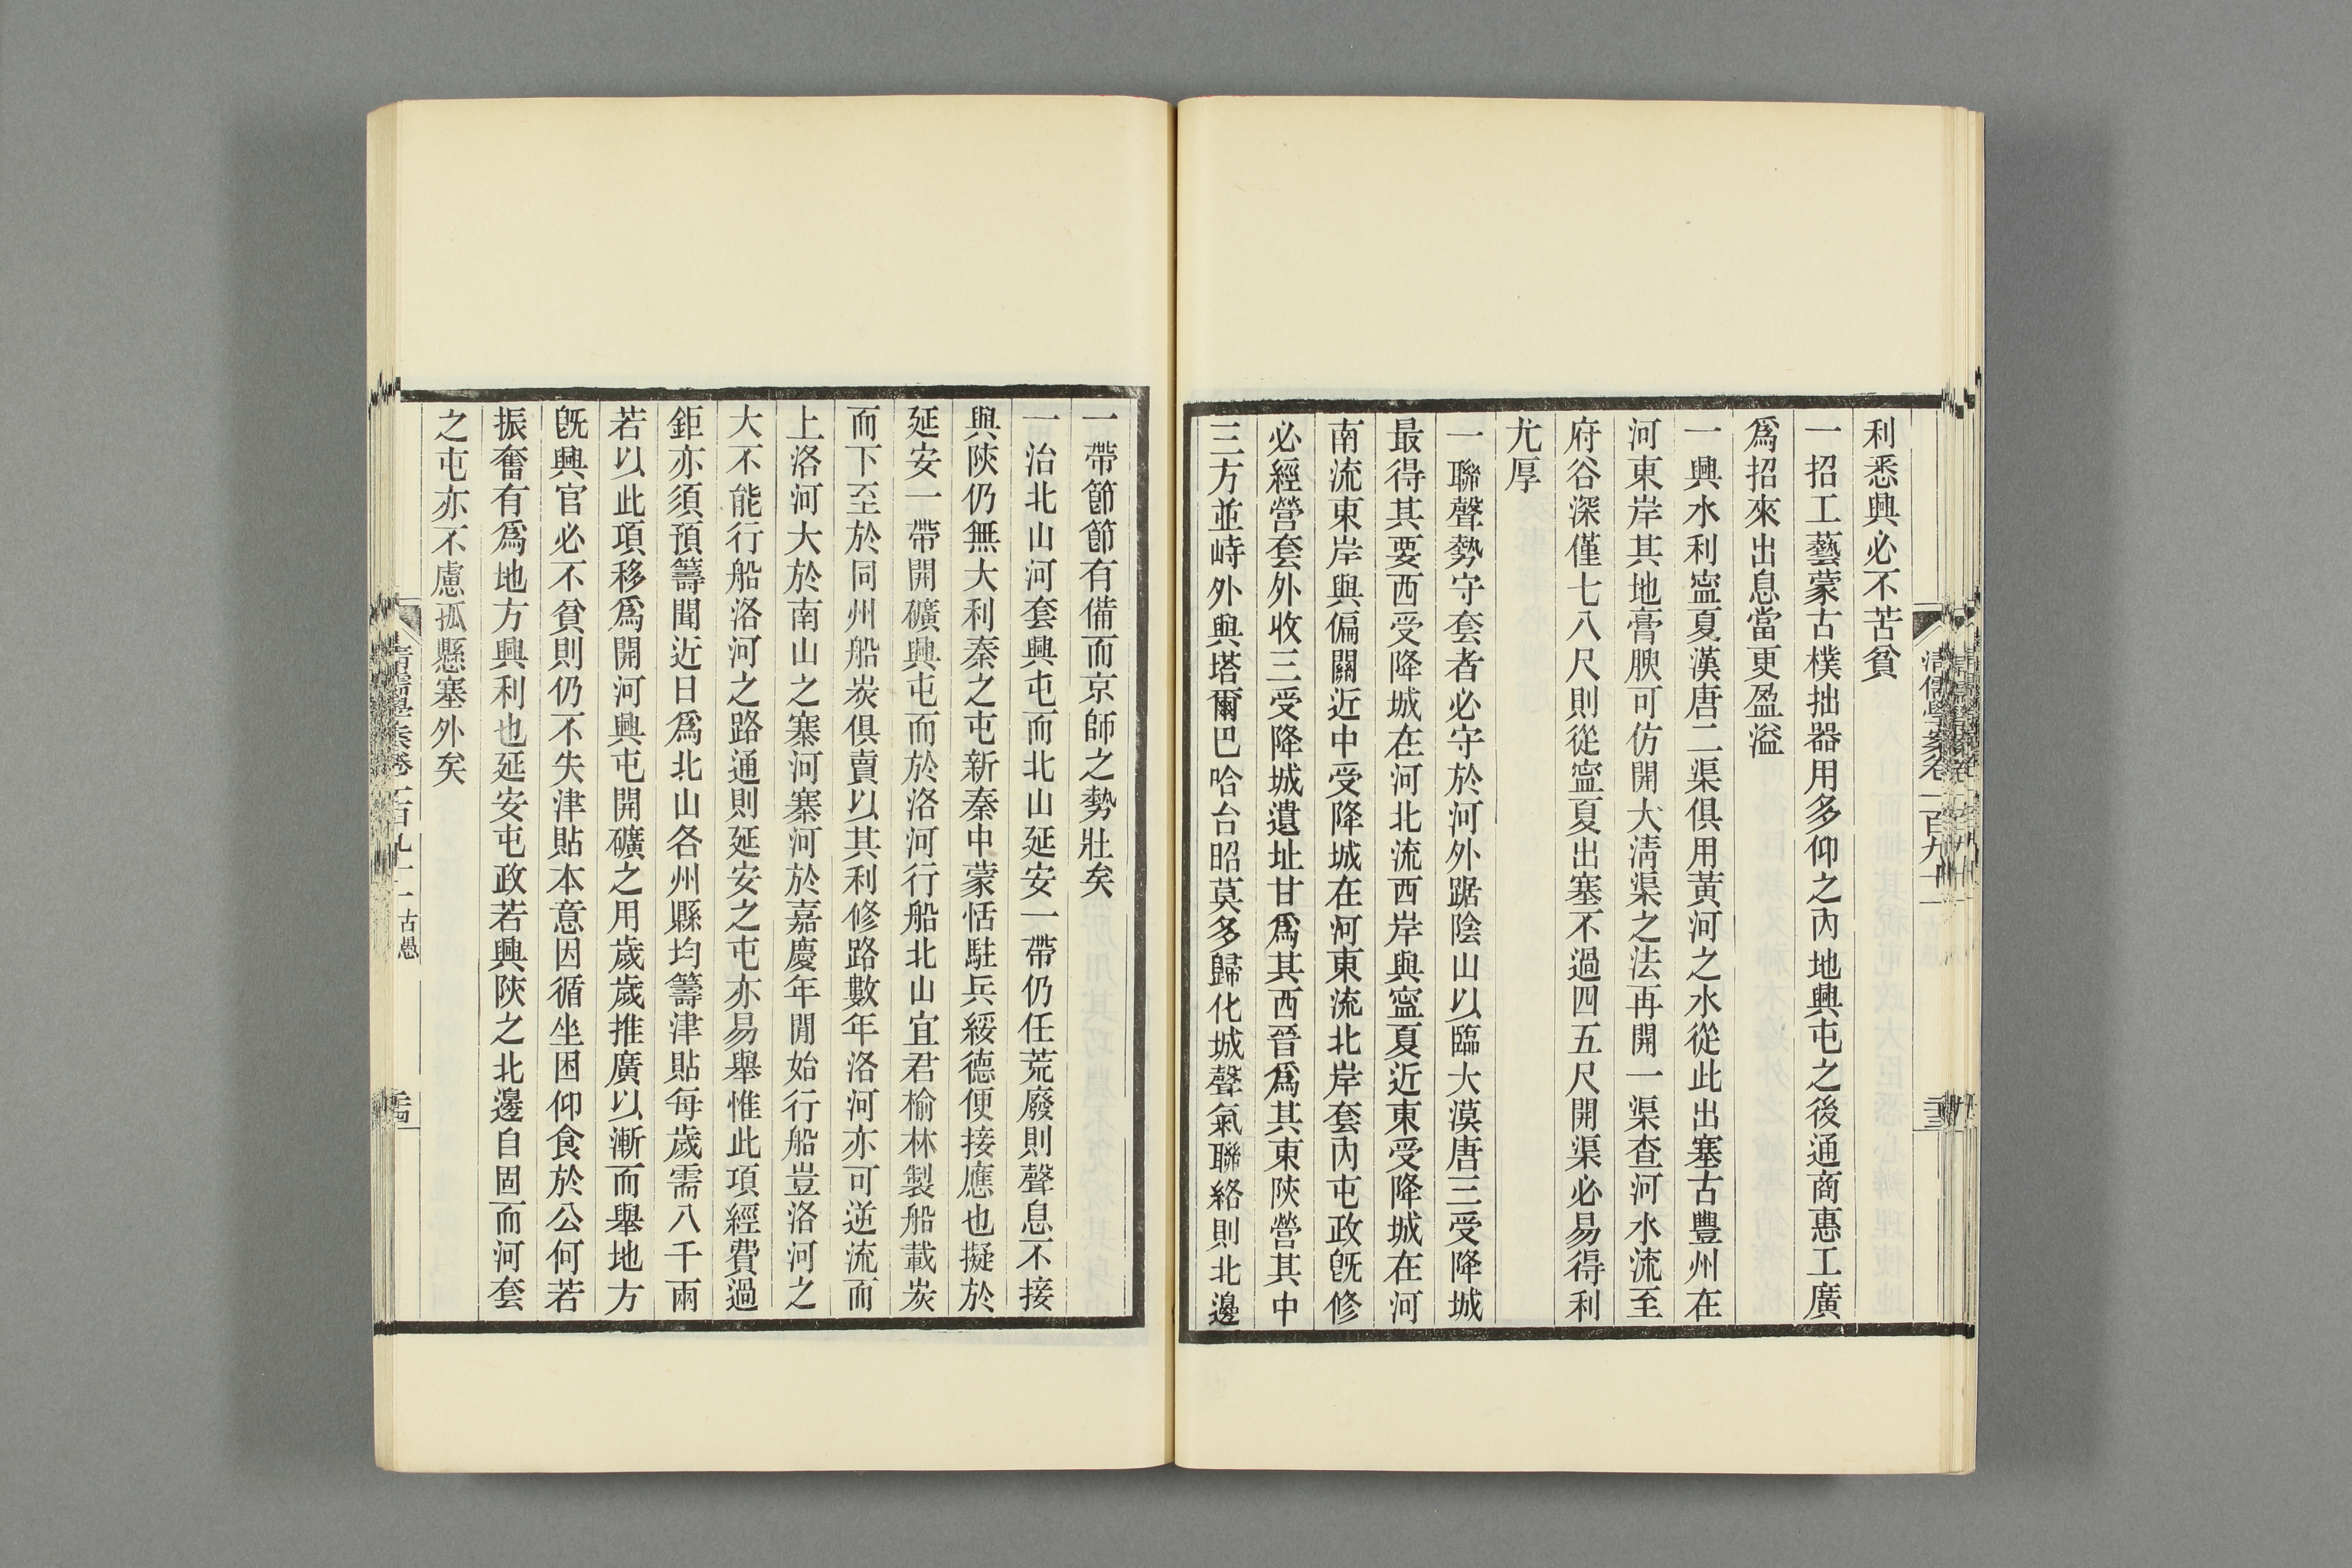 利悉興必不苦貧
一招工藝蒙古樸拙器用多仰之內地興屯之後通商惠工廣
爲招來出息當更盈溢
一興水利寧夏漢唐二渠俱用黃河之水從此出塞古豐州在
河東岸其地膏腴可仿開大淸渠之法再開一渠查河水流至
府谷深僅七八尺則從寧夏出塞不過四五尺開渠必易得利
尤厚
一聯聲勢守套者必守於河外踞陰山以臨大漠唐三受降城
最得其要西受降城在河北流西岸與寧夏近東受降城在河
南流東岸與偏關近中受降城在河東流北岸套內屯政旣修
必經營套外收三受降城遺址甘爲其西晉爲其東陝營其中
三方並峙外與塔爾巴哈台昭莫多歸化城聲氣聯絡則北邊
一帶節節有備而京師之勢壯矣
一治北山河套興屯而北山延安一帶仍任荒廢則聲息不接
與陝仍無大利秦之屯新秦中蒙恬駐兵綏德便接應也擬於
延安一帶開礦興屯而於洛河行船北山宜君榆林製船載炭
而下至於同州船炭俱賣以其利修路數年洛河亦可逆流而
上洛河大於南山之寨河寨河於嘉慶年閒始行船豈洛河之
大不能行船洛河之路通則延安之屯亦易舉惟此項經費過
鉅亦須預籌聞近日爲北山各州縣均籌津貼每歲需八千兩
若以此項移爲開河興屯開礦之用歲歲推廣以漸而舉地方
旣興官必不貧則仍不失津貼本意因循坐困仰食於公何若
振奮有爲地方興利也延安屯政若興陝之北邊自固而河套
之屯亦不慮孤懸塞外矣
古愚